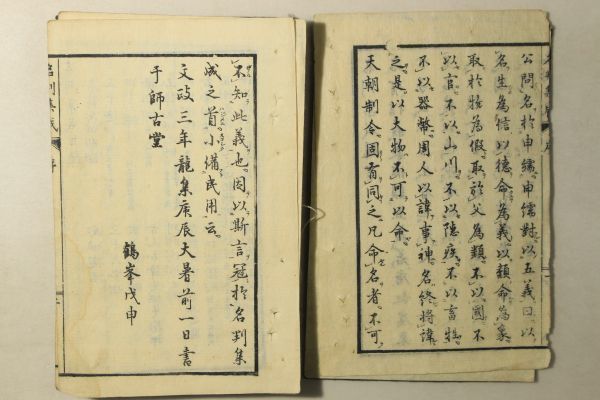 公問名於申繻申繻對以五義曰以
名生為信以德命為義以類命為象
取於物為假取於父為類不以國不
以官不以山川不以隱疾不以畜牲
不以器幣周人以諱事神名終將諱
之是以大物不可以命
天朝制令固有同之凡命名者不可
不知此義也因以斯言冠於名判集
成之首小備民用云
文政三年龍集庚辰大暑前一日書
于師古堂
鶴峯戊申
名判集成 序